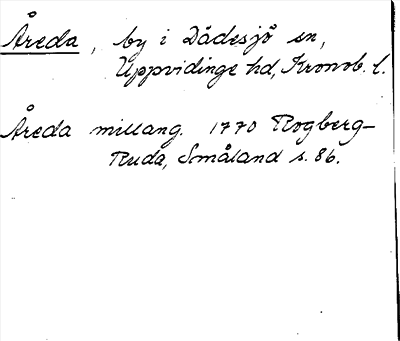 Åreda, by i Dädesjö sn,
Uppvidinge hd, Kronob. l.
Åreda millang. 1770 Rogberg-
Ruda, Småland s. 86.